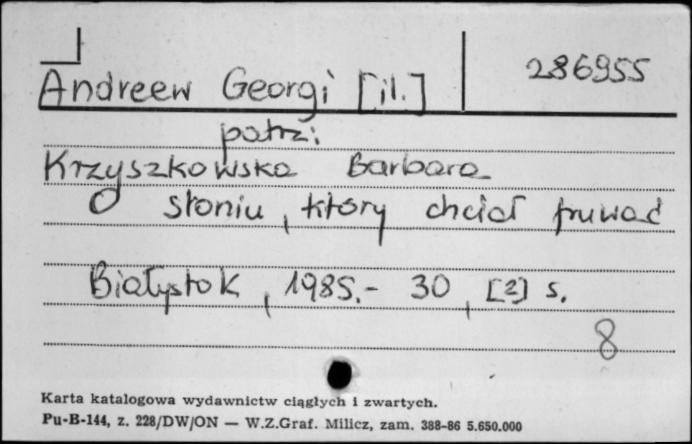 286955
Andreew Georgi [il.]
patrz:
Krzyszkowska Barbara
O słoniu, który chciał fruwać
Białystok, 1985.- 30, [2] s.
8
Karta katalogowa wydawnictw ciągłych i zwartych.
Pu-B-144, z. 228/DW/ON — W.Z.Graf. Milicz, zam. 388-86 5.650.000